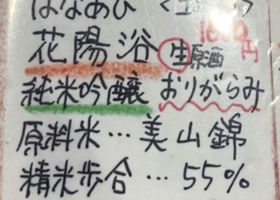 はなあび
花陽浴 生原酒
純米吟醸 おりがらみ
原料米…美山錦
精米歩合…55%